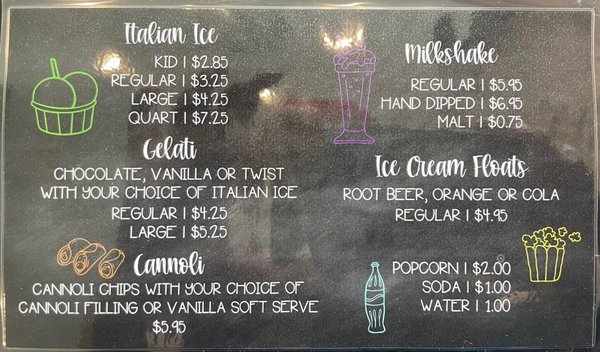 Italian Ice
KID | $2.85
REGULAR | $3.25
LARGE | $4.25
QUART | $7.25
Gelati
CHOCOLATE, VANILLA OR TWIST
WITH YOUR CHOICE OF ITALIAN ICE
REGULAR | $4.25
LARGE | $5.25
Cannoli
CANNOLI CHIPS WITH YOUR CHOICE OF
CANNOLI FILLING OR VANILLA SOFT SERVE
$5.95
Milkshake
REGULAR | $5.95
HAND DIPPED | $6.95
MALT | $0.75
Ice Cream Floats
ROOT BEER, ORANGE OR COLA
REGULAR | $4.95
POPCORN | $2.00
SODA | $1.00
WATER | 1.00